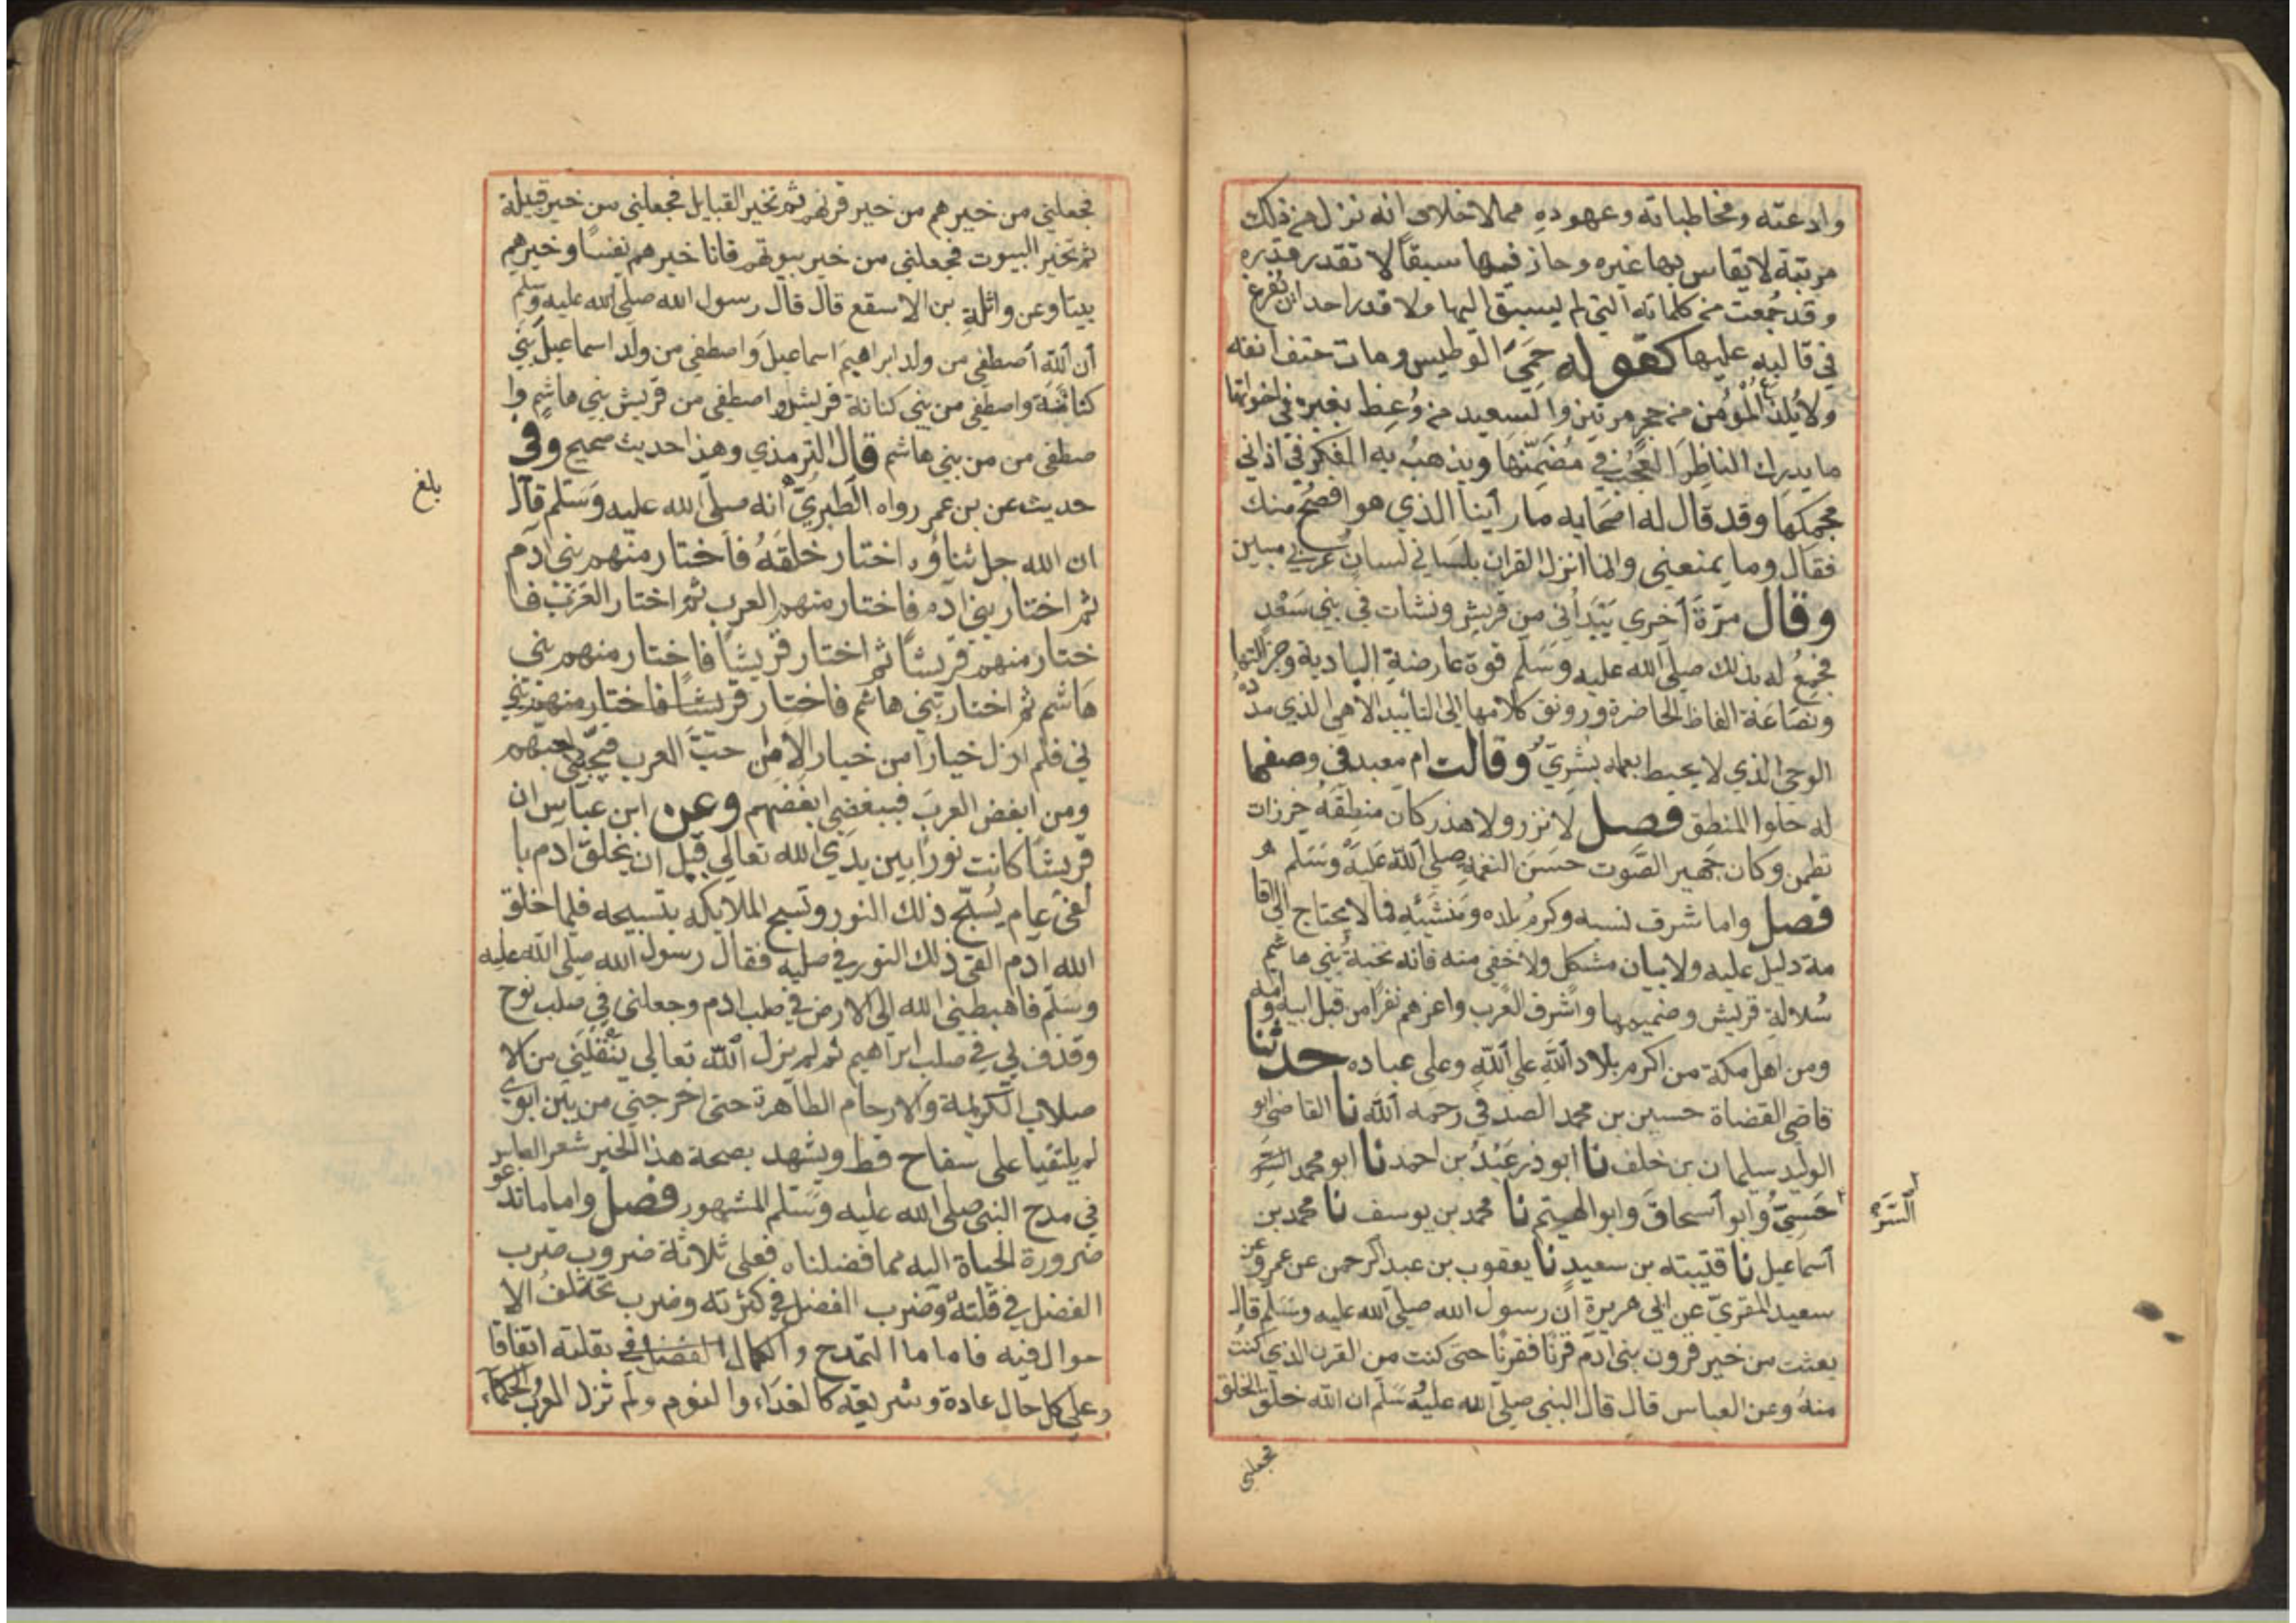 وادعته ومخاطباته وعهوده مما لاخلاف انه نزل من ذلك
مرتبة لايقاس بها غيره وحاز فيها سبقًا لا تقدر قدره
وقد جُمعت من كلماته التي لم يسبق اليها ولا قدر احد ان يُفرغ
في قالبه عليها كقوله حَمِيَ الوطيس ومات حتف انفه
ولا يُلدغ المؤمن من جحر مرتين والسعيد من وُعظ بغيره في اخواتها
ما يدرك الناظر العجب في مُضَمّنها ويذهب به الفكر في اداني
حكمها وقد قال له اصحابه ما رأينا الذي هو افصح منك
فقال وما يمنعني وانما انزل القران بلساني لسان عربي مبين
وقال مرّةً أخري بَيْدَ أني من قريش ونشات في بني سَعْدٍ
فجُمِعَ له بذلك صلي الله عليه وسَلم قوة عارضة البادية وجزالتها
ونصاعة الفاظ الحاضرة ورونق كلامها الي التأييد الالهي الذي مَدَدُ
الوحي الذي لا يحيط بعلمه بشريّ وقالت ام معبد في وصفها
له حلوا المنطق فصل لا نزر ولا هذر كان منطقَهُ خرزات
نظمن وكان جَهير الصَّوت حسَنَ النغمة صلي الله عَليه وسَلم
فصل واما شرف نسبه وكرمُ بلده ومنشئه فما لا يحتاج الي اقا
مة دليل عليه ولا بيان مشكل ولا خفي منه فانه نخبةُ بني هاشم
سُلالة قريش وصميمها واشرف العرب واعزهم نفرًا من قبل ابيه وامه
ومن اهل مكة من اكرم بلاد الله علي الله وعلي عباده حدثنا
قاضي القضاة حسين بن محمد الصدفي رحمه الله نا القاضي ابو
الوليد سليمان بن خلف نا ابو ذر عَبْدُ بن احمد نا ابو محمد السَّرَ
خَسِيّ وابو أسحاق وابو الهيثم نا محمد بن يوسف نا محمد بن
السَّرَ
أسماعيل نا قتيبته بن سعيد نا يعقوب بن عبد الرحمن عن عمرو عن
سعيد المقري عن ابي هريرة أن رسول الله صلي الله عليه وسَلم قال
بعثت من خير قرون بني ادم قرنًا فقرنًا حتي كنت من القرن الذي كنتُ
منهُ وعن العباس قال قال النبي صلي الله عليه سَلم ان الله خلق الخلق
فجعلني
فجعلني من خيرهم من خير قرنهم ثم تخير القبايل فجعلني من خير قبيلة
ثم تخير البيوت فجعلني من خير بيوتهم فانا خيرهم نفسًا وخيرهم
بيتا وعن واثلة بن الاسقع قال قال رسول الله صلي الله عليه وسلم
أن الله أصطفي من ولد ابراهيم اسماعيل واصطفي من ولد اسماعيل بني
كنانة واصطفي من بني كنانة قريشا واصطفي من قريش بني هاشم وا
صطفي من من بني هاشم قال الترمذي وهذا حديث صحيح وفي
حديث عن بن عمر رواه الطبريّ انه صلي الله عليه وسَلم قال
بلغ
ان الله جل ثناؤه اختار خلقَهُ فاختار منهم بني ادم
ثم اختار بني ادم فاختار منهم العرب ثم اختار العرب فا
ختار منهم قريشًا ثم اختار قريشًا فاختار منهم بني
هَاشم ثم اختار بني هاشم فاختار قريشا فاختار منهم بني
ني فلم ازل خيارًا من خيار الا من حبّ العرب فبحبّي احبّهم
ومن ابغض العرب فببغضي ابغضهم وعن ابن عباس ان
قريشًا كانت نورًا بين يدي الله تعالي قبل ان يخلق ادم با
لفي عام يُسَبّح ذلك النور وتسبح الملايكه بتسبيحه فلما خلق
الله ادم القي ذلك النور في صلبه فقال رسول الله صلي الله عليه
وسَلم فاهبطني الله الي الارض في صلب ادم وجعلني في صلب نوح
وقذف بي في صلب ابراهيم ثم لم يزل الله تعالي ينقلني من الا
صلاب الكريمة والارحام الطاهرة حتي اخرجني من بين ابوي
لم يلتقيا علي سفاح قط ويشهد بصحة هذا الخبر شعر العباس
في مدح النبي صلي الله عليه وسَلم المشهور فصل واما ما تدعو
ضرورة الحياة اليه مما فضلناه فعلي ثلاثة ضروب ضرب
الفضل في قلته وضرب الفضل في كثرته وضرب تختلف الا
حوال فيه فاما ما التمدح والكمال الفضل في بقلته اتفاقا
وعلي كل حال عادة وشريعة كالغداء والنوم ولم تزل العرب والحكماء